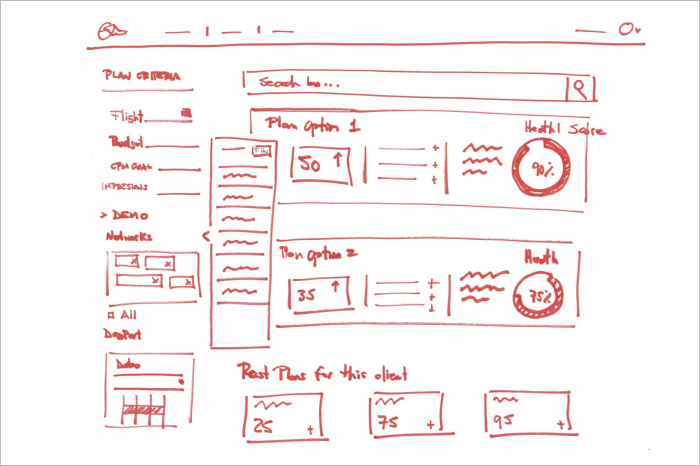 PLAN CRITERIA
Flight
Budget
CPM GOAL
IMPRESIONS
> DEMO
Networks
x x
x x
All
DayPart
Demo
Search
Plan Option 1
50 ↑
+
+
+
Health Score
90%
Plan Option 2
35 ↑
+
+
+
Health
75%
Past Plans for this client
25 +
75 +
95 +